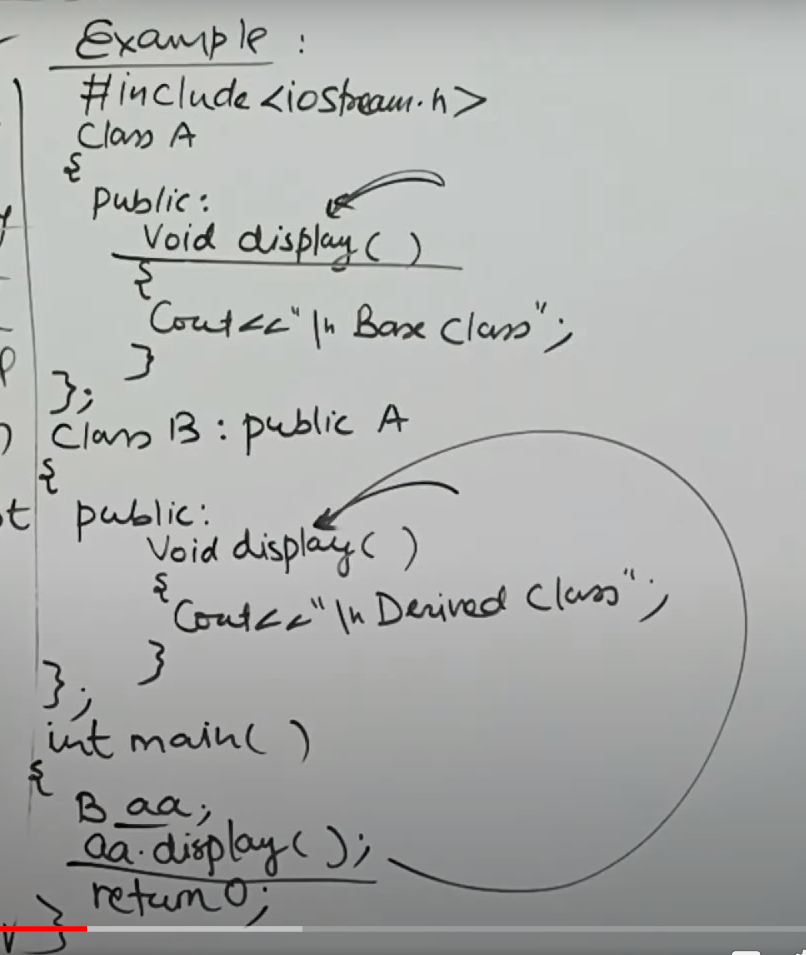 Example :
#include <iostream.h>
Class A
{
public:
Void display( )
{
Cout<<"\n Base Class";
}
};
Class B : public A
{
public:
Void display( )
{
Cout<<"\n Derived Class";
}
};
int main( )
{
B aa;
aa.display( );
return 0;
}